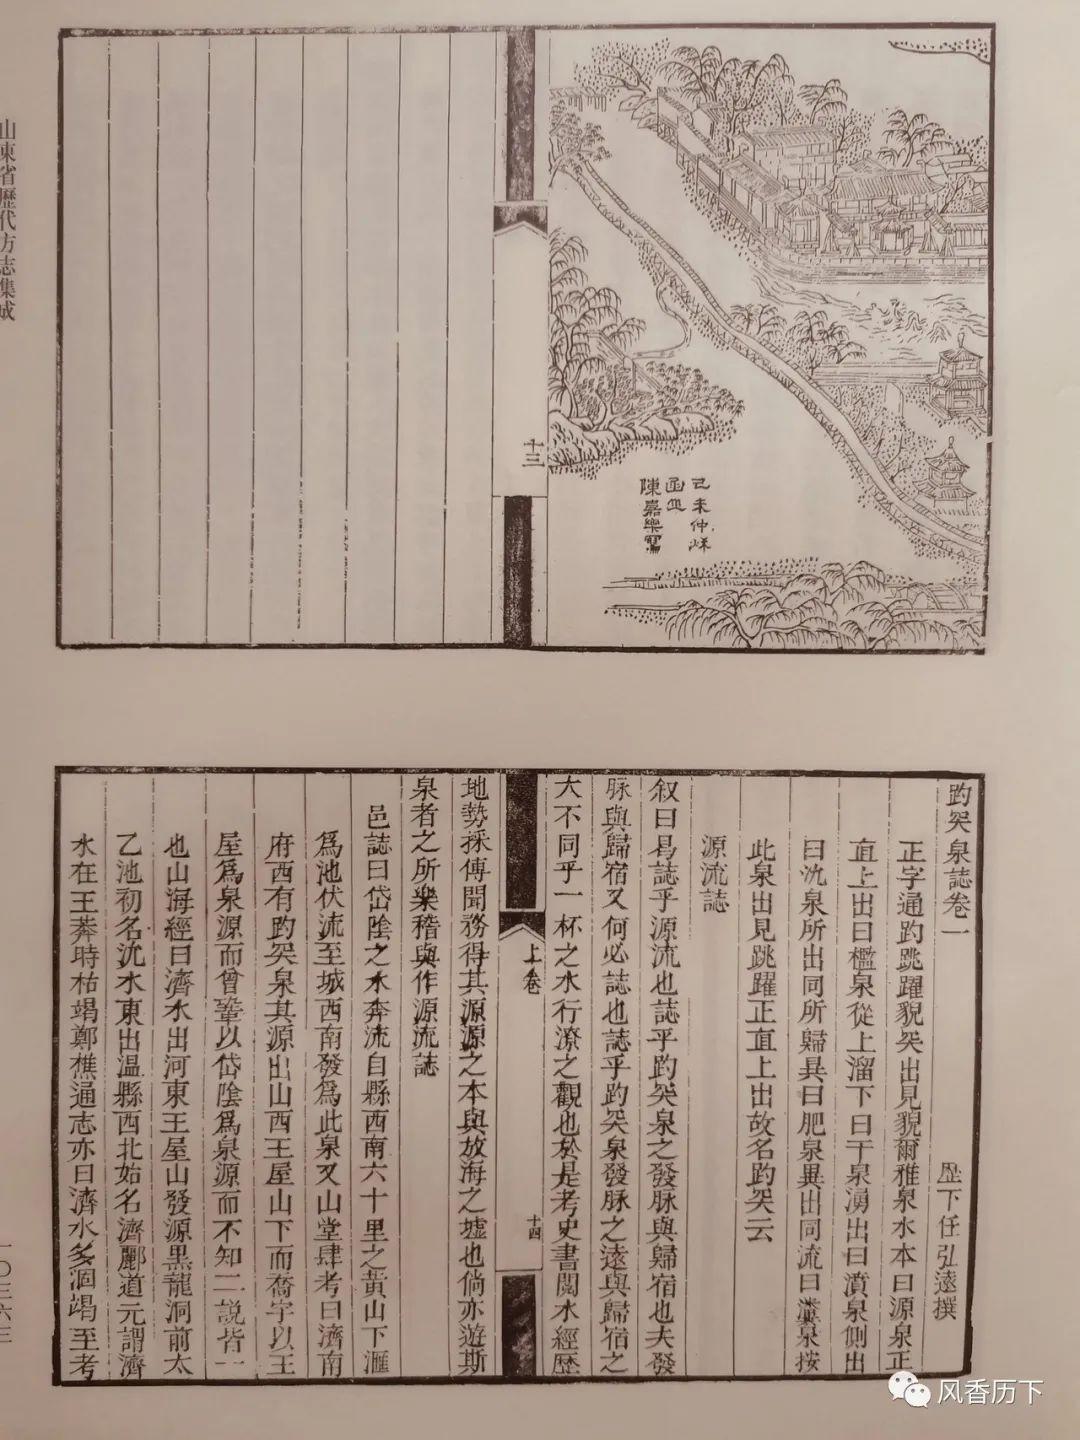 山東省歷代方志集成
己未仲秋
陳嘉樂寫
十三
趵突泉誌卷一
歷下任弘遠撰
正字通趵跳躍貌突出見貌爾雅泉水本曰源泉正
直上出曰檻泉從上溜下曰下泉湧出曰濆泉側出
曰氿泉所出同所歸異曰肥泉異出同流曰瀵泉按
此泉出見跳躍正直上出故名趵突云
源流誌
叙曰曷誌乎源流也誌乎趵突泉之發脉與歸宿也夫發
脉與歸宿又何必誌也誌乎趵突泉發脉之遠與歸宿之
大不同乎一杯之水行潦之觀也於是考史書閱水經歷
上卷
十四
地勢採傳聞務得其源源之本與放海之墟也倘亦遊斯
泉者之所樂稽與作源流誌
邑誌曰岱陰之水奔流自縣西南六十里之黃山下滙
爲池伏流至城西南發爲此泉又山堂肆考曰濟南
府西有趵突泉其源出山西王屋山下而喬宇以王
屋爲泉源而曾鞏以岱陰爲泉源而不知二説皆一
也山海經曰濟水出河東王屋山發源黑龍洞前太
乙池初名沇水東出溫縣西北始名濟酈道元謂濟
水在王莽時枯竭鄭樵通志亦曰濟水多涸竭至考
一〇三六三
风香历下